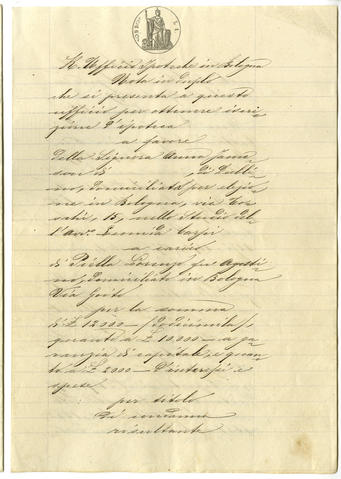 R. Uffizio Ipoteche in Bologna
Nota in duplo
che si presenta a questo
uffizio per ottenere iscri-
zione d'ipoteca
a favore
della Signora Anna Jame-
son di , di Dubli-
no, domiciliata per elezio-
ne in Bologna, via
15, nello Studio del-
l'Avv. Leonida Carpi
a carico
di Piella Lorenzo fu Agosti-
no, domiciliato in Bologna
Via Goito
per la somma
di £ 12000 – (dodicimila),
quanto a £ 10000 – a ga-
ranzia di capitale, e quan-
to a £ 2000 – d'interessi e
spese
per titolo
di condanna
risultante